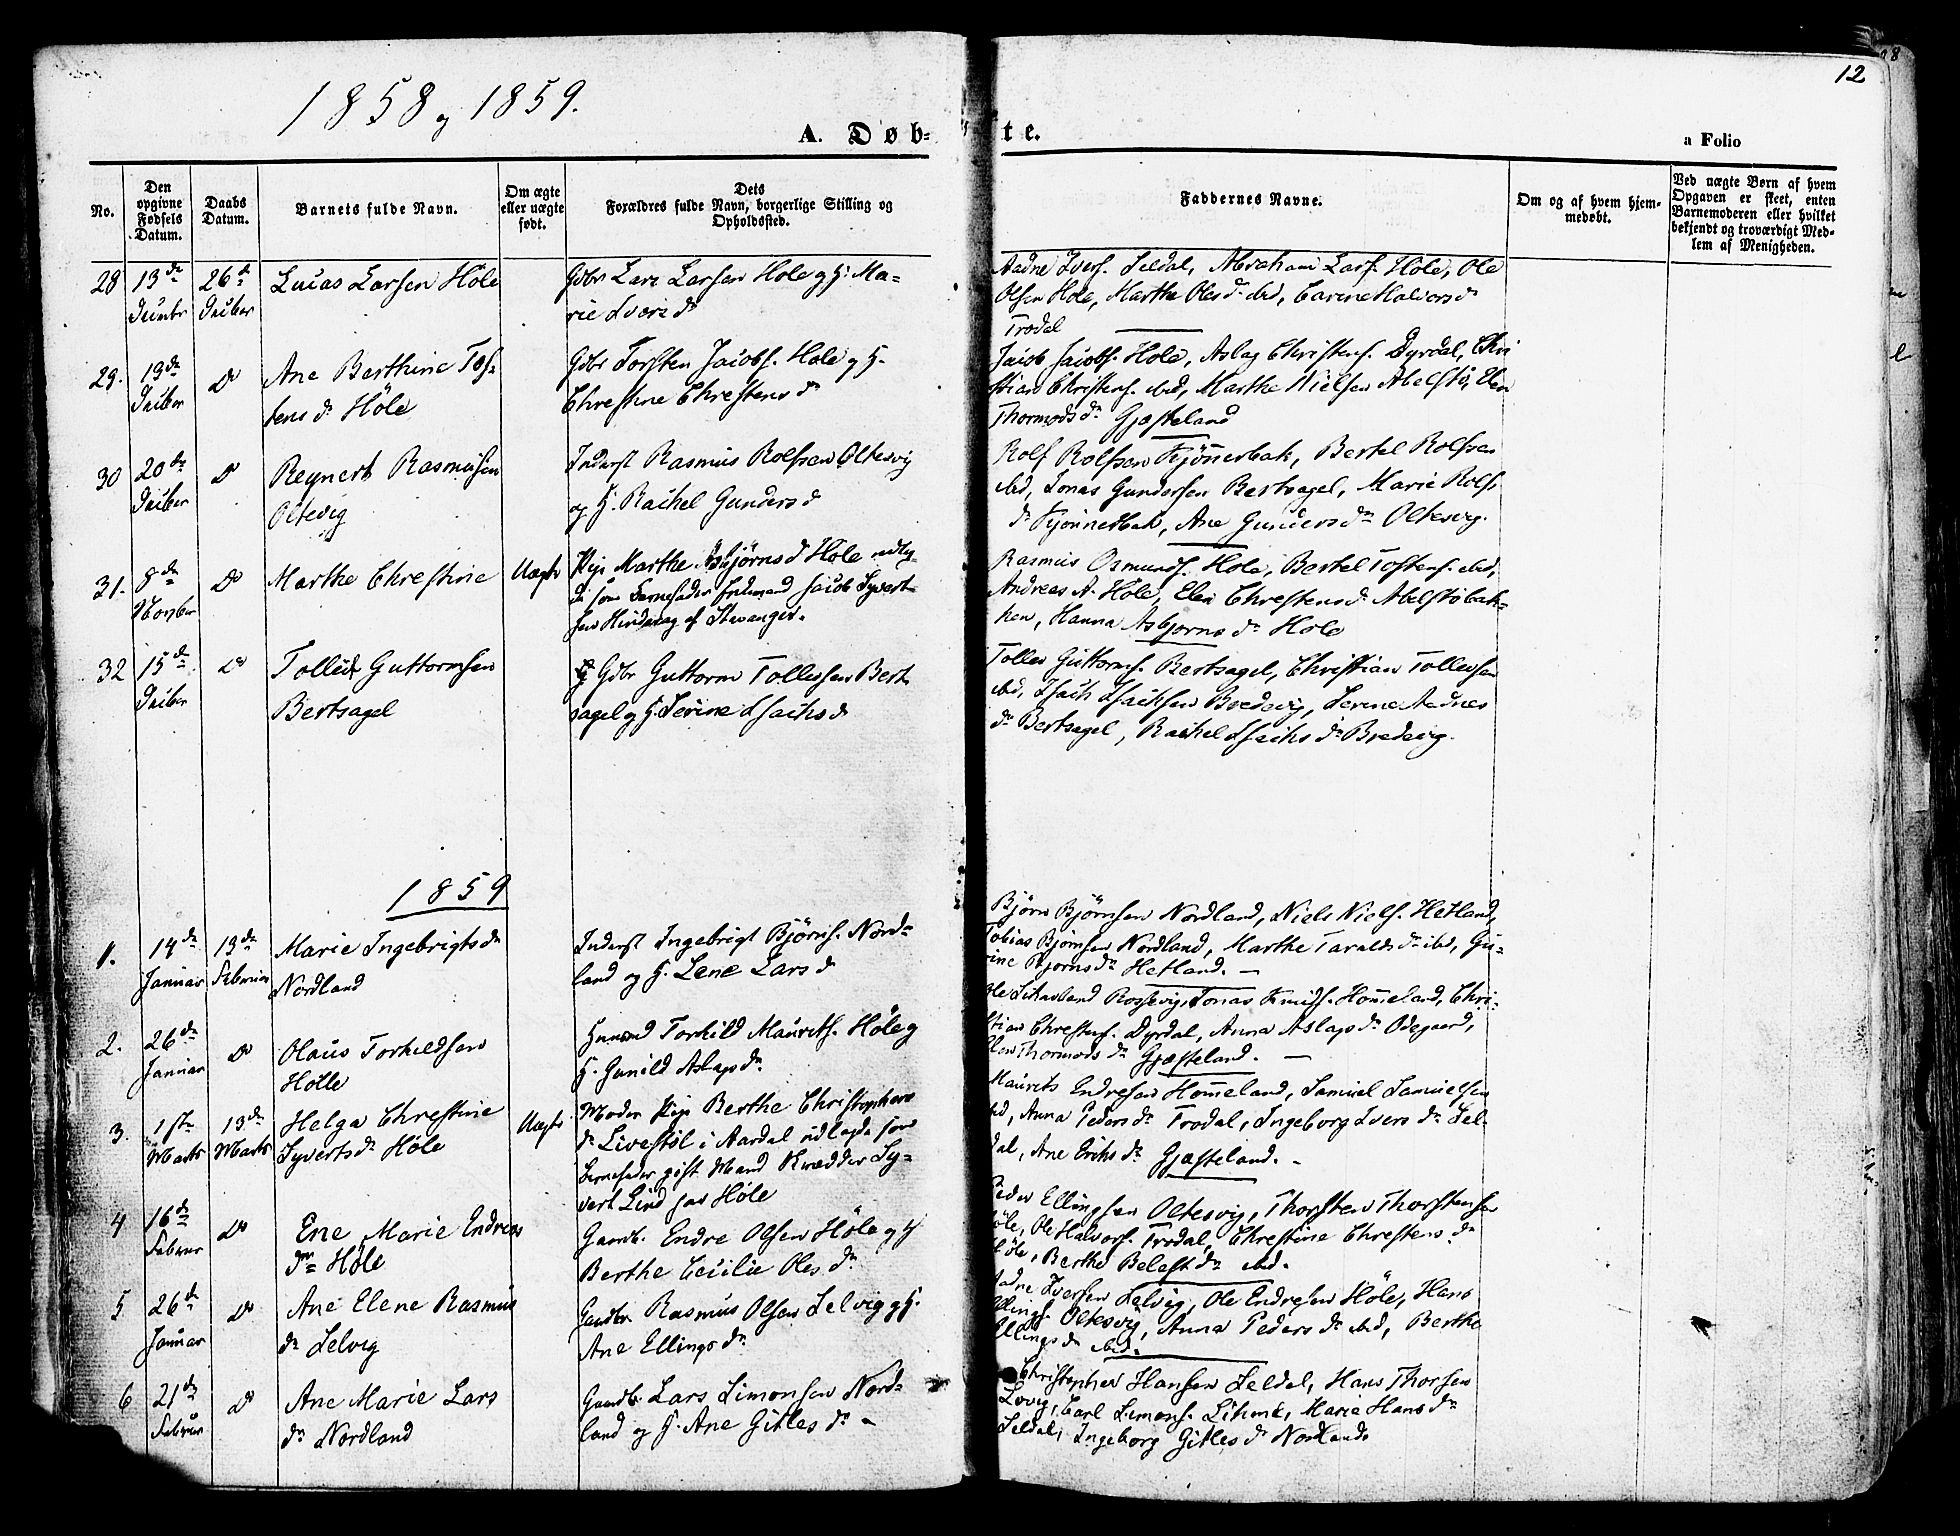 12
1858 og 1859.
A. Døb-
te.
a Folio
No.
Den opgivne Fødsels Datum.
Daabs Datum.
Barnets fulde Navn.
Om ægte eller uægte født.
Dets Forældres fulde Navn, borgerlige Stilling og Opholdssted.
Faddernes Navne.
Om og af hvem hjem-
medøbt.
Ved uægte Børn af hvem
Opgaven er skeet, enten
Barnemoderen eller hvilket
bekjendt og troværdigt Med-
lem af Menigheden.
28 13de 26de Lucas Larsen Höle
Gdbr Lars Larsen Hole og H. Ma-
rie Ivers d
Aadne Ivers. Seldal, Abraham Lars. Höle, Ole
Olsen Hole, Marthe Oles d. ibd, Carine Halvors d
Trodal
29. 13de Do Ane Berthine Tos-
tens d. Höle
Gdbr Torsten Jacobs. Hole og H.
Chrestine Chrestens d
Jacob Jacobs. Hole, Aslag Christens. Dyrdal, Chri
stian Christens. ibd, Marthe Nielsen Abelstö, Elen
Thormods dr Gjesteland
30 20de Do Reynert Rasmusen
Oltevig
Inderst Rasmus Rolfsen Oltesvig
og H. Rachel Gunders d
Rolf Rolfsen Kjönnerbak, Bertel Rolfsen
ibd, Jonas Gundersen Bertsagel, Marie Rolfs
d. Kjönnerbak, Ane Gunders dr Oltesvig.
31. 8de Do Marthe Chrestine Uægte
Novbr
Pige Marthe Asbjörns d Höle udlag-
de som Barnefader Jacob Syvert-
sen Hinderag af Stavanger.
Rasmus Osmunds. Hole, Bertel Tostens. ibd,
Andreas A. Höle, Elen Chrestens d. Abelstöbak-
ken, Hanna Asbjorns dr Hole
32 15de Do Tollef Guttormsen
Bertsagel
Gdbr Guttorm Tollefsen Bert
sagel og H. Serine Isachs d
Tollef Guttorms. Bertsagel, Christian Tollefsen
ibd, Isach Isachsen Bredevig, Serine Aadnes
dr Bertsagel, Rachel Isachs dr Bredevig.
1859
1. 14de 13de Marie Ingebrigts dr
Januar Februar Nordland
Inderst Ingebrigt Björns. Nord-
land og H. Lene Lars d
Björn Björnsen Nordland, Niels Niels. Hetland,
Tobias Bjornsen Nordland, Marthe Taralds dr ibd, Gu-
rine Bjorns dr Hetland. —
2. 26de Do Olaus Torkildsen
Januar Hölle
Husmd Torkild Maurits. Höle og
H. Gunild Aslags dr.
Rossevig, Jonas Knuds. Homeland, Chri-
stian Chrestens. Dyrdal, Anna Aslags dr Odegaard,
Elen Thormods dr Gjesteland. —
3. 1ste 13de Helga Chrestine Uægte
Marts Marts Syverts dr Höle
Moder Pige Berthe Christophers
dr Livestöl i Aardal udlagde som
Barnefader gift Mand Sy-
vert Höle
Maurits Endresen Homeland, Samuel Samuelsen
ibd, Anna Peders dr Trodal, Ingeborg Ivers dr Sel-
dal, Ane Eriks dr Gjesteland. —
4 16de Do Ene Marie Endres
Februar dr Höle
Gaardb. Endre Olsen Höle og H
Berthe Cecilie Oles dr
Peder Ellingsen Oltesvig, Thorsten Thorstensen
Höle, Ole Halvors. Trodal, Chrestine Chrestens dr
Höle, Berthe dr ibd.
5 26de Do Ane Elene Rasmus
Januar dr Selvig
Gaardbr Rasmus Olsen Selvig og H.
Ane Ellings dr
Aadne Iversen Selvig, Ole Endresen Höle, Hans
Ellings. Oltesvig, Anna Peders dr ibd, Berthe
Ellings dr ibd.
6 21de Do Ane Marie Lars
Februar dr Nordland
Gaardb. Lars Simonsen Nord-
land og H. Ane Gitles dr —
Christopher Hansen Seldal, Hans Thorsen
Carl Simons. Lihme, Marie Hans dr
Seldal, Ingeborg Gitles dr Nordland.